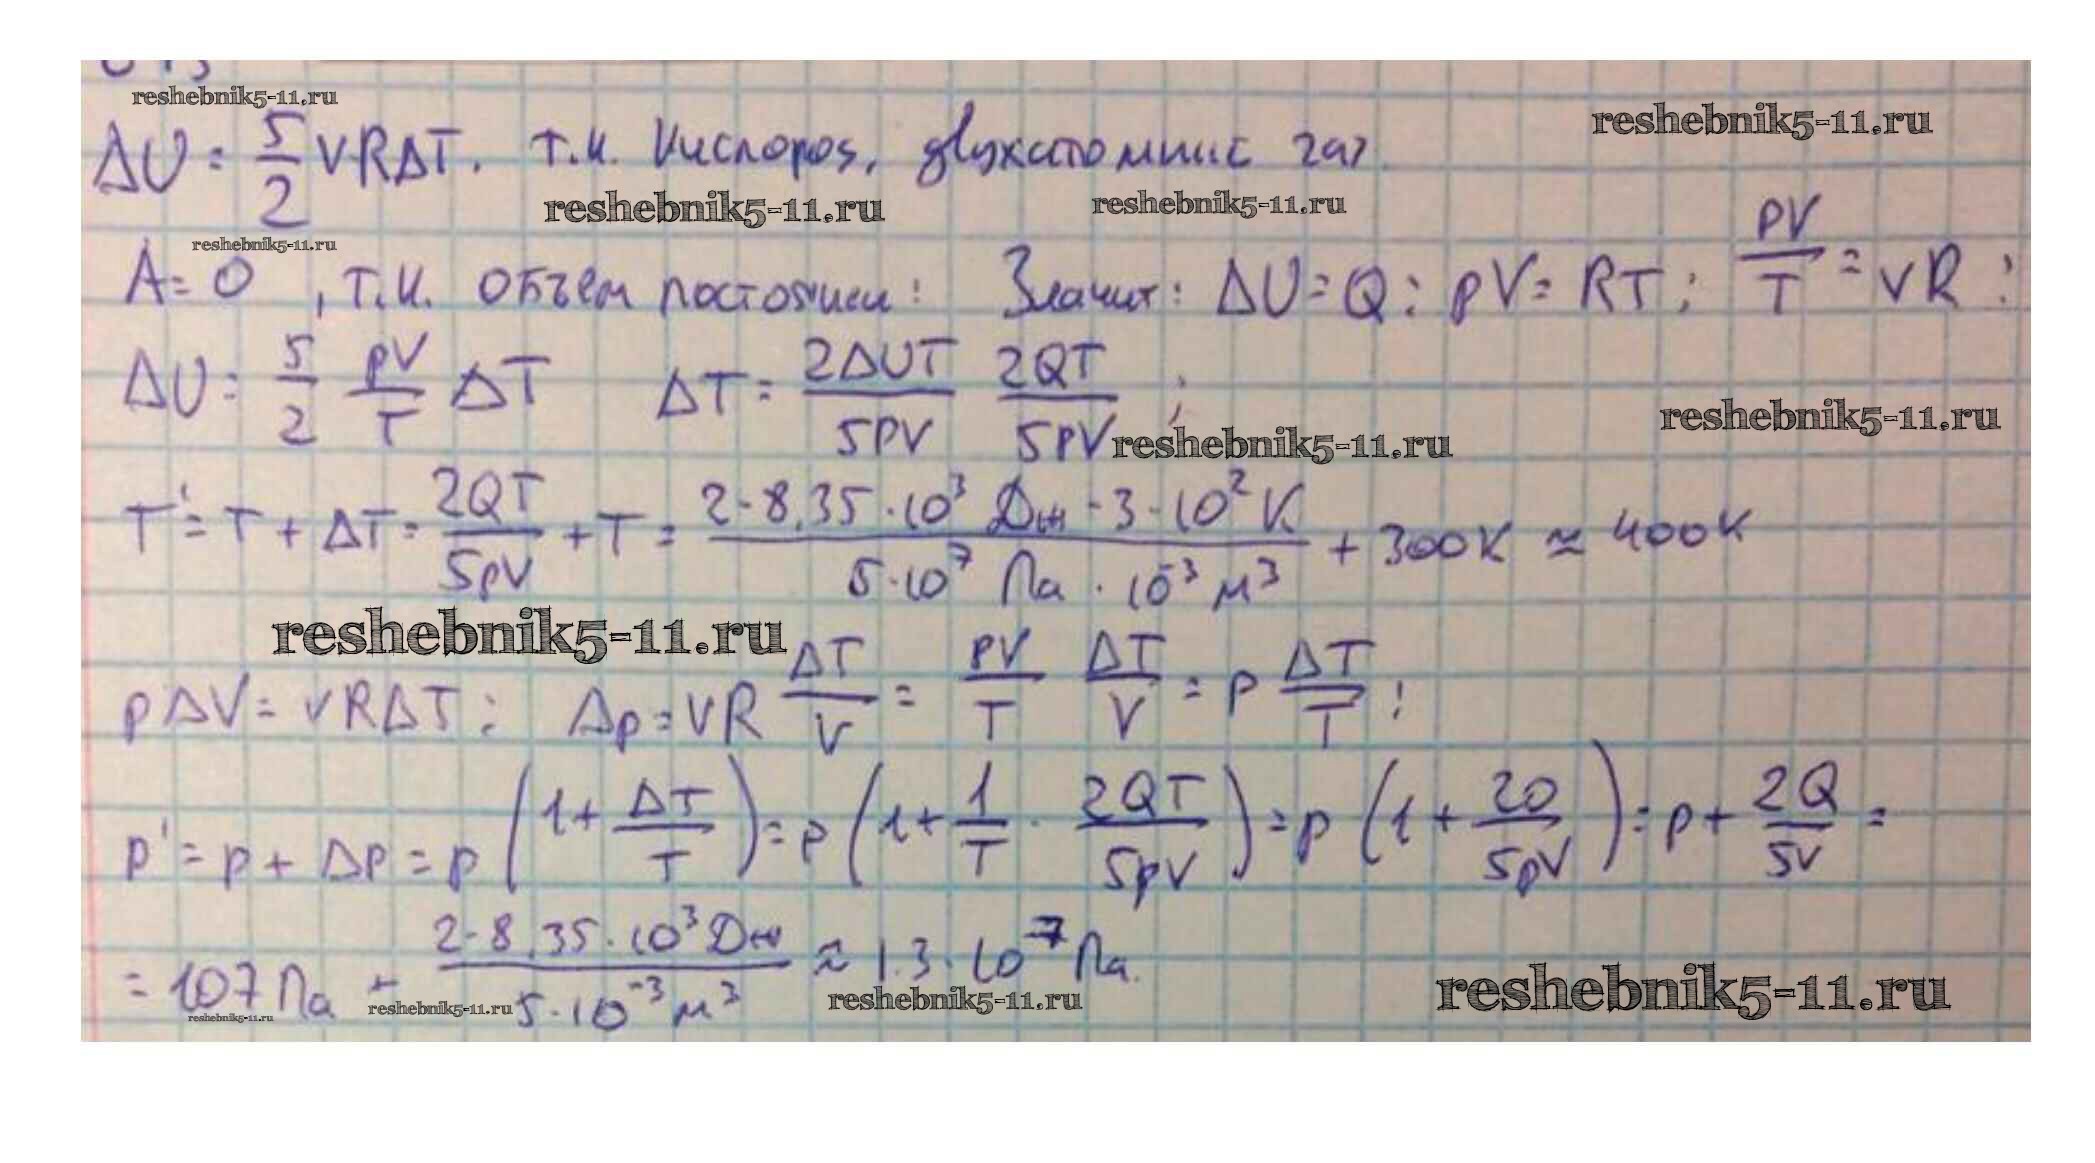 reshebnik5-11.ru
reshebnik5-11.ru
ΔU = 5/2 νRΔT. т.к. Кислород, двухатомный газ.
reshebnik5-11.ru reshebnik5-11.ru
reshebnik5-11.ru
A = 0, т.к. объём постоянен: Значит: ΔU = Q: pV = RT; pV/T = νR;
ΔU = 5/2 pV/T ΔT ΔT = 2ΔUT/5pV 2QT/5pV;
reshebnik5-11.ru
reshebnik5-11.ru
T' = T + ΔT = 2QT/5pV + T = 2·8,35·10³ Дж·3·10² К / 5·10⁷ Па·10⁻³ м³ + 300К ≈ 400К
reshebnik5-11.ru
pΔV = νRΔT; Δp = νR ΔT/V = pV/T ΔT/V = p ΔT/T;
p' = p + Δp = p (1 + ΔT/T) = p (1 + 1/T · 2QT/5pV) = p (1 + 2Q/5pV) = p + 2Q/5V =
= 107 Па + 2·8,35·10³ Дж / 5·10⁻³ м³ ≈ 1.3·10⁷ Па.
reshebnik5-11.ru reshebnik5-11.ru reshebnik5-11.ru reshebnik5-11.ru